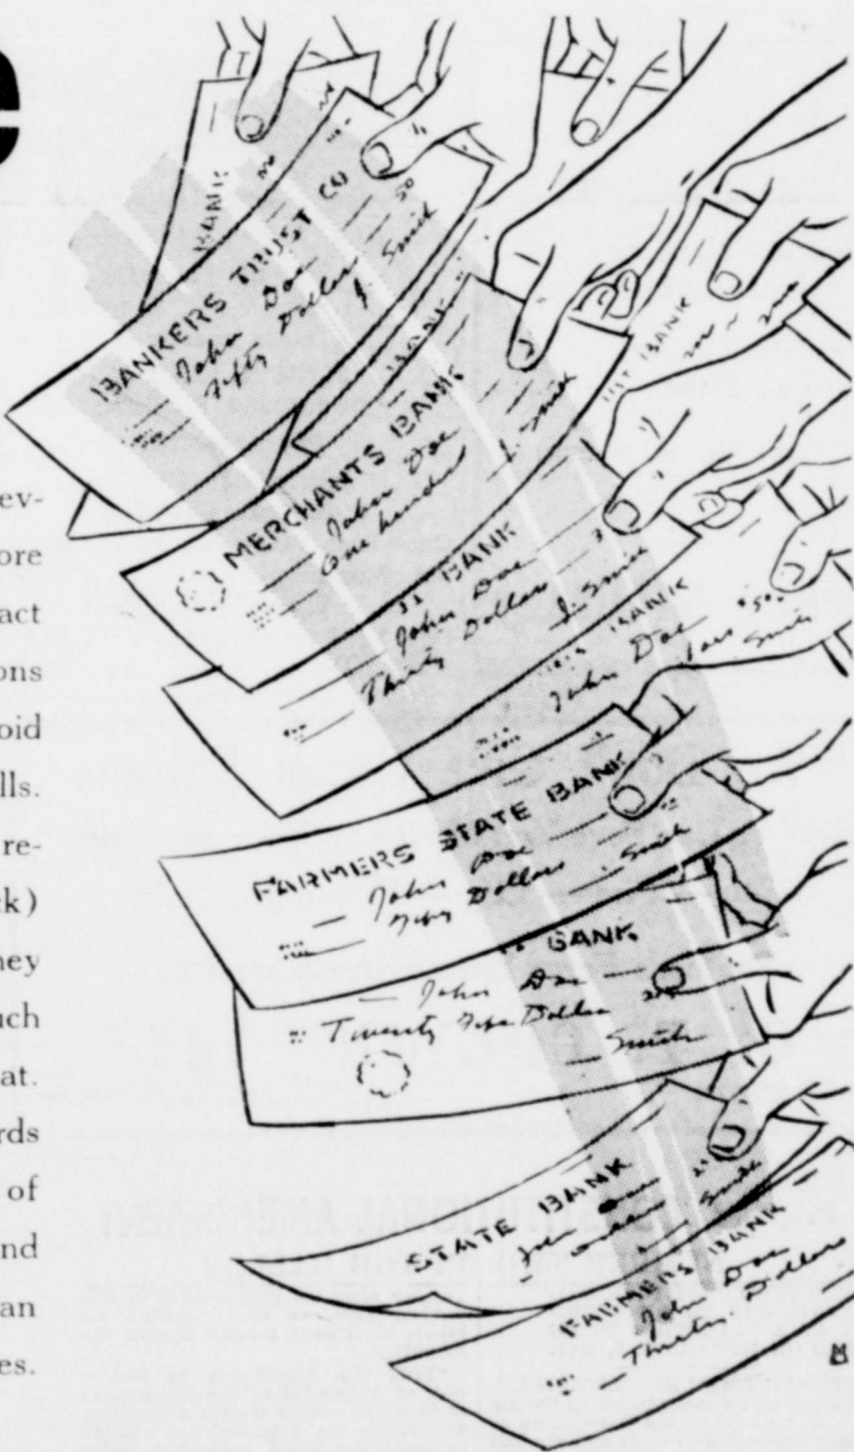 e
ev-
ore
act
ons
oid
lls.
re-
k)
ney
uch
at.
rds
of
nd
an
es.
BANK
BANKERS TRUST CO
50
John Doe
Fifty Dollar
J. Smith
BANK
MERCHANTS BANK
John Doe
One hundred
J. Smith
BANK
BANK
John Doe
Thirty Dollars
J. Smith
BANK
John Doe
50
Smith
FARMERS STATE BANK
John Doe
Fifty Dollars
Smith
BANK
John Doe
Twenty Five Dollars
Smith
STATE BANK
John Doe
Smith
FARMERS BANK
John Doe
Thirty Dollars